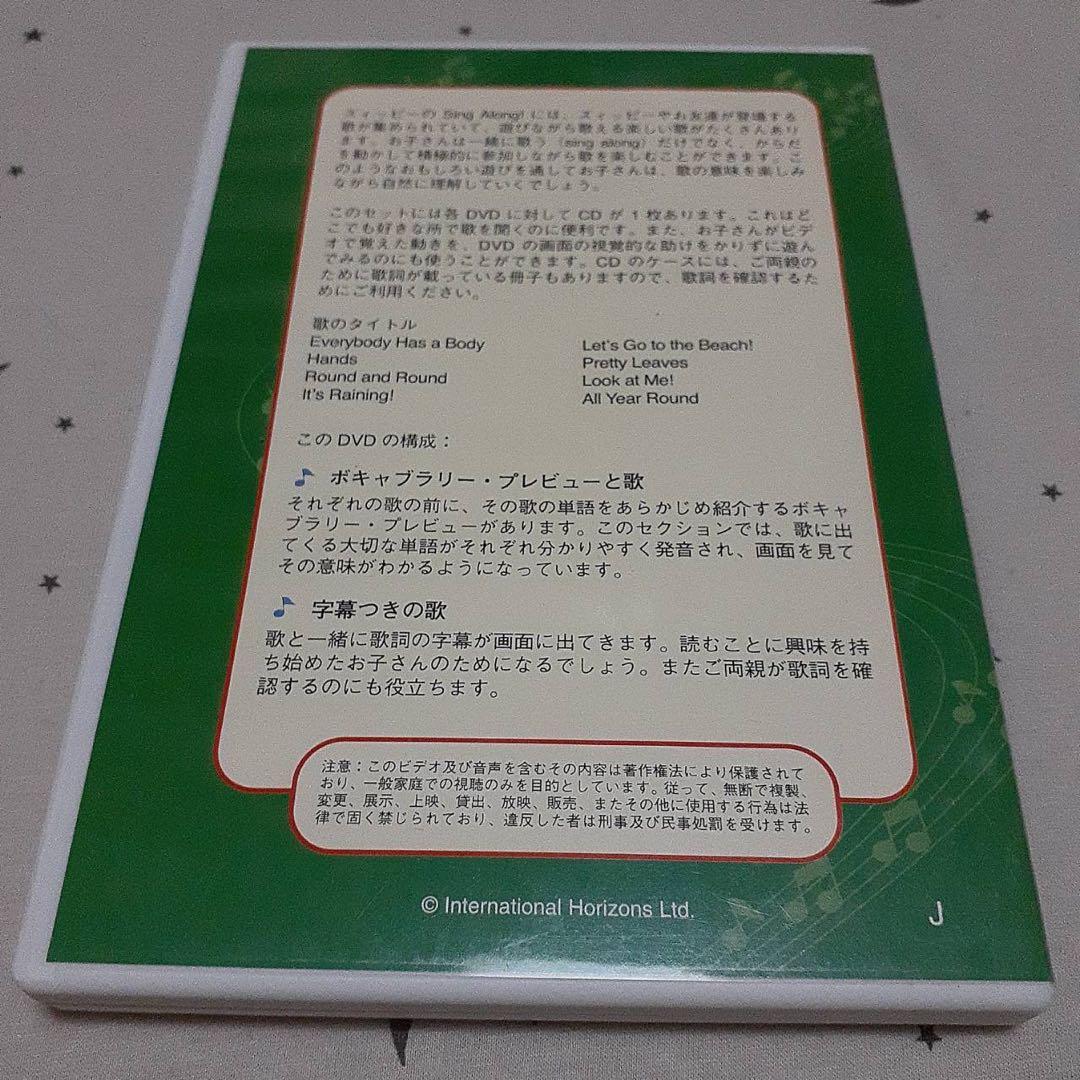 ズィッピーの Sing Along! には、ズィッピーやお友達が登場する
歌が集められていて、遊びながら歌える楽しい歌がたくさんあり
ます。お子さんは一緒に歌う (sing along) だけでなく、からだ
を動かして積極的に参加しながら歌を楽しむことができます。こ
のようなおもしろい遊びを通してお子さんは、歌の意味を楽しみ
ながら自然に理解していくでしょう。
このセットには各 DVD に対して CD が 1 枚あります。これはど
こでも好きな所で歌を聞くのに便利です。また、お子さんがビデ
オで覚えた動きを、DVD の画面の視覚的な助けをかりずに遊ん
でみるのにも使うことができます。CD のケースには、ご両親の
ために歌詞が載っている冊子もありますので、歌詞を確認するた
めにご利用ください。
歌のタイトル
Everybody Has a Body
Hands
Round and Round
It's Raining!
Let's Go to the Beach!
Pretty Leaves
Look at Me!
All Year Round
この DVD の構成：
ボキャブラリー・プレビューと歌
それぞれの歌の前に、その歌の単語をあらかじめ紹介するボキャ
ブラリー・プレビューがあります。このセクションでは、歌に出
てくる大切な単語がそれぞれ分かりやすく発音され、画面を見て
その意味がわかるようになっています。
字幕つきの歌
歌と一緒に歌詞の字幕が画面に出てきます。読むことに興味を持
ち始めたお子さんのためになるでしょう。またご両親が歌詞を確
認するのにも役立ちます。
注意：このビデオ及び音声を含むその内容は著作権法により保護されて
おり、一般家庭での視聴のみを目的としています。従って、無断で複製、
変更、展示、上映、貸出、放映、販売、またその他に使用する行為は法
律で固く禁じられており、違反した者は刑事及び民事処罰を受けます。
© International Horizons Ltd.
J